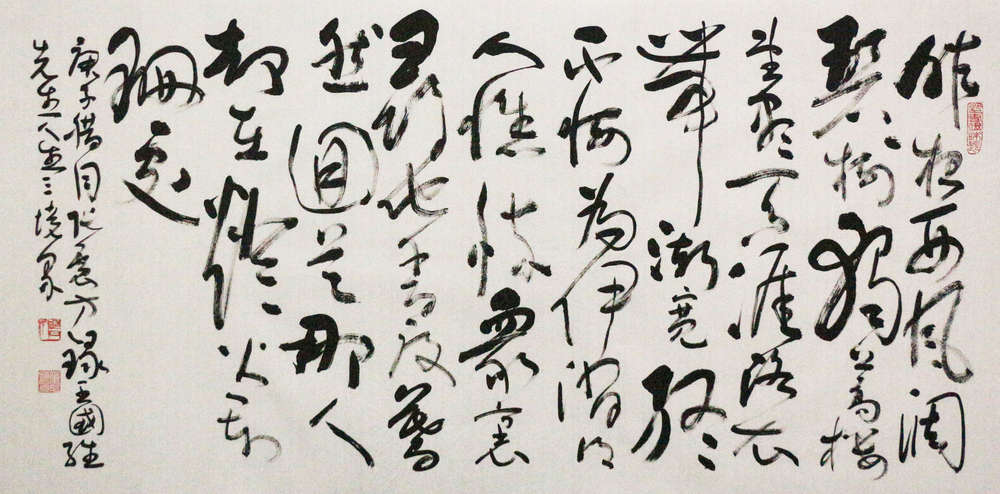 昨夜西風凋
碧樹獨上高樓
望盡天涯路衣
帶漸寬終
不悔為伊消得
人憔悴眾裏
尋他千百度驀
然回首那人
却在燈火闌
珊處
庚子 錄王國維
先生人生三境界